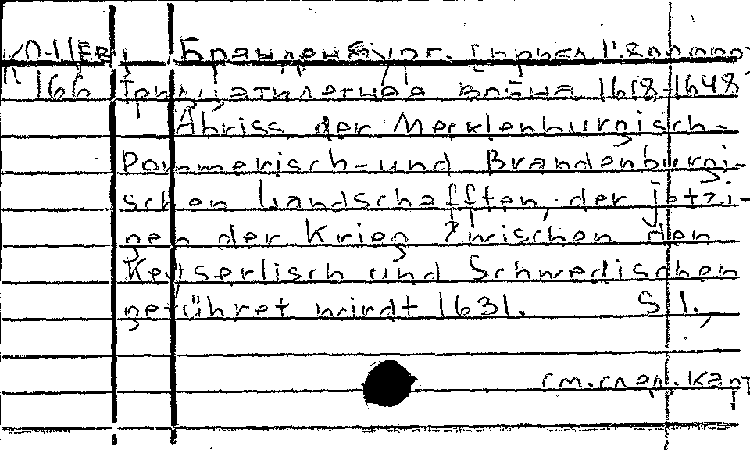 Бранденбург. 1:800000
166 Тридцатилетняя война 1618-1648
Abriss der Mecklenburgisch-
Pommerisch- und Brandenburgi-
schen Landschafften, der jetzi-
gen der Krieg zwischen den
Keyserlisch und Schwedischen
geführet wirdt 1631. S.l.,
см. след. карт